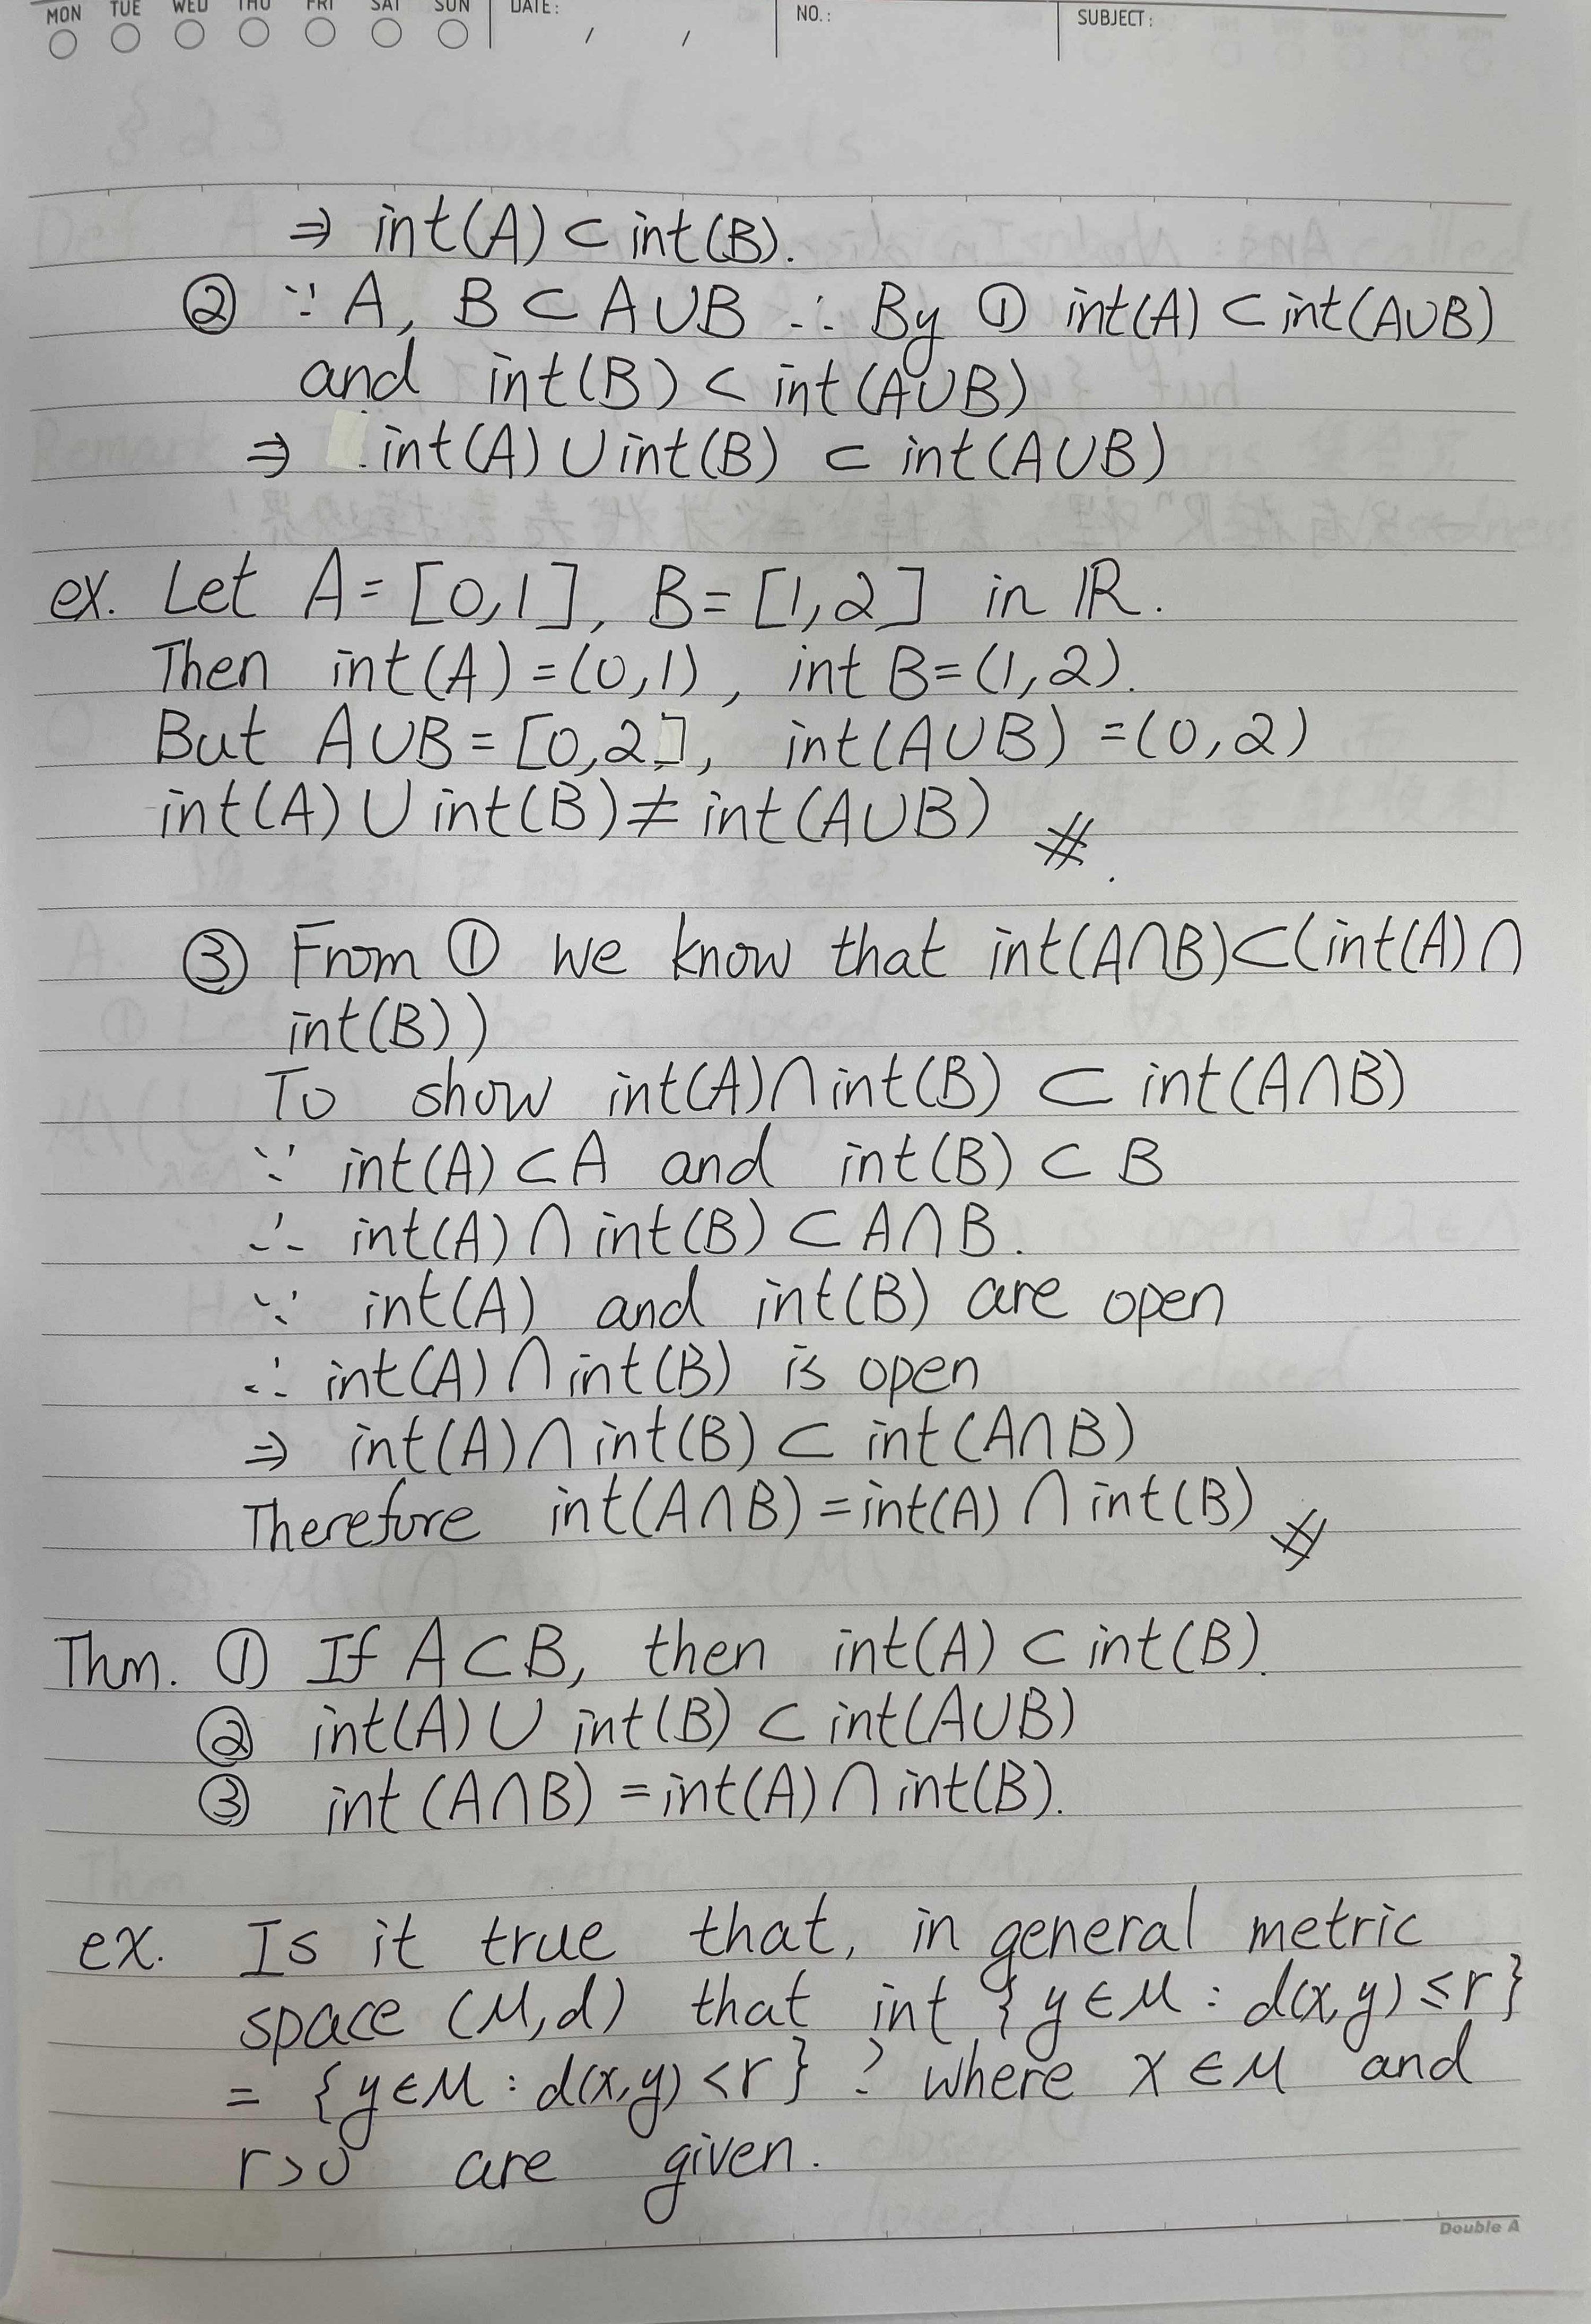 MON TUE WED THU FRI SAT SUN DATE: / / NO.: SUBJECT:
⇒ int(A) ⊂ int(B).
② ∵ A, B ⊂ A∪B ∴ By ① int(A) ⊂ int(A∪B)
and int(B) ⊂ int(A∪B)
⇒ int(A) ∪ int(B) ⊂ int(A∪B)
ex. Let A = [0,1], B = [1,2] in ℝ.
Then int(A) = (0,1), int B = (1,2).
But A∪B = [0,2], int(A∪B) = (0,2)
int(A) ∪ int(B) ≠ int(A∪B) #.
③ From ① we know that int(A∩B) ⊂ (int(A) ∩
int(B))
To show int(A) ∩ int(B) ⊂ int(A∩B)
∵ int(A) ⊂ A and int(B) ⊂ B
∴ int(A) ∩ int(B) ⊂ A∩B.
∵ int(A) and int(B) are open
∴ int(A) ∩ int(B) is open
⇒ int(A) ∩ int(B) ⊂ int(A∩B)
Therefore int(A∩B) = int(A) ∩ int(B) #
Thm. ① If A⊂B, then int(A) ⊂ int(B).
② int(A) ∪ int(B) ⊂ int(A∪B)
③ int(A∩B) = int(A) ∩ int(B).
ex. Is it true that, in general metric
space (M,d) that int {y∈M : d(x,y) ≤ r}
= {y∈M : d(x,y) < r} ? where x∈M and
r>0 are given.
Double A